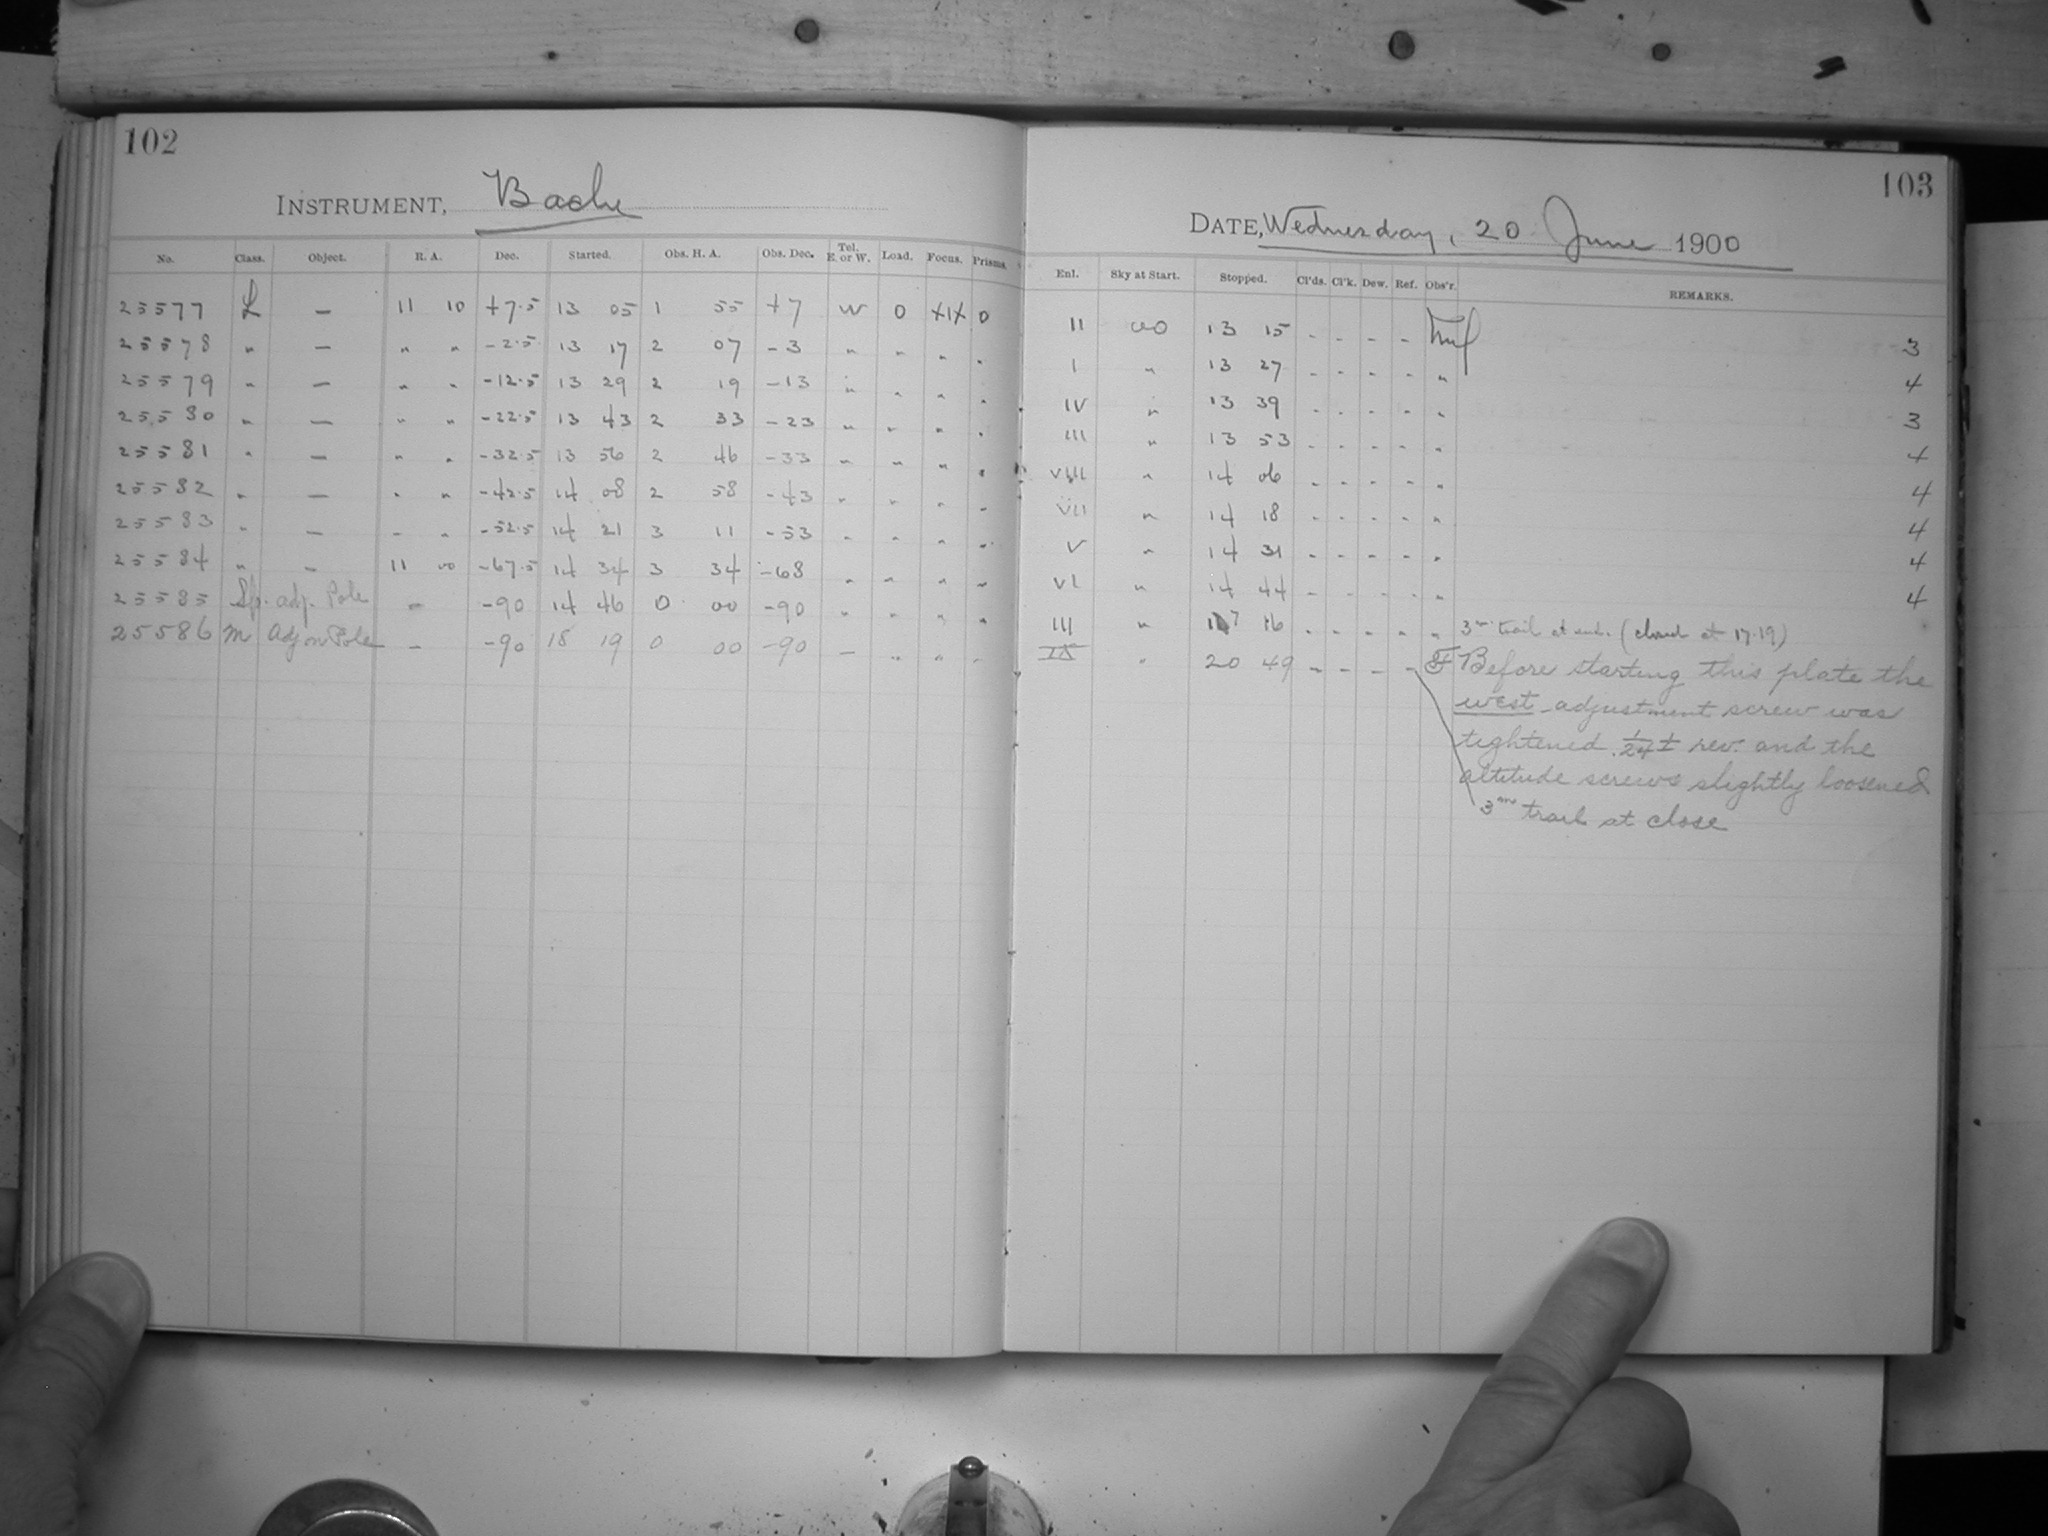 102
INSTRUMENT, Bache
No. Class. Object. R. A. Dec. Started. Obs. H. A. Obs. Dec. Tel. E. or W. Load. Focus. Prisms.
25577 L — 11 10 +7.5 13 05 1 55 +7 W 0 0
25578 " — " " -2.5 13 17 2 07 -3 " " " "
25579 " — " " -12.5 13 29 2 19 -13 " " " "
25580 " — " " -22.5 13 43 2 33 -23 " " " "
25581 " — " " -32.5 13 56 2 46 -33 " " " "
25582 " — " " -42.5 14 08 2 58 -43 " " " "
25583 " — " " -52.5 14 21 3 11 -53 " " " "
25584 " — 11 00 -67.5 14 34 3 34 -68 " " " "
25585 Sp. adj. Pole — -90 14 46 0 00 -90 " " " "
25586 m Adj on Pole — -90 18 19 0 00 -90 — " " "
103
DATE, Wednesday, 20 June 1900
Enl. Sky at Start. Stopped. Cl'ds. Cl'k. Dew. Ref. Obs'r. REMARKS.
II 13 15 - - - - 3
I " 13 27 - - - - " 4
IV " 13 39 - - - - " 3
III " 13 53 - - - - " 4
VIII " 14 06 - - - - " 4
VII " 14 18 - - - - " 4
V " 14 31 - - - - " 4
VI " 14 44 - - - - " 4
III " 17 16 - - - - " 3m trail at end. (closed at 17.19)
IX " 20 49 - - - - Before starting this plate the
west adjustment screw was
tightened 1/24 ± rev. and the
altitude screws slightly loosened
3m trail at close